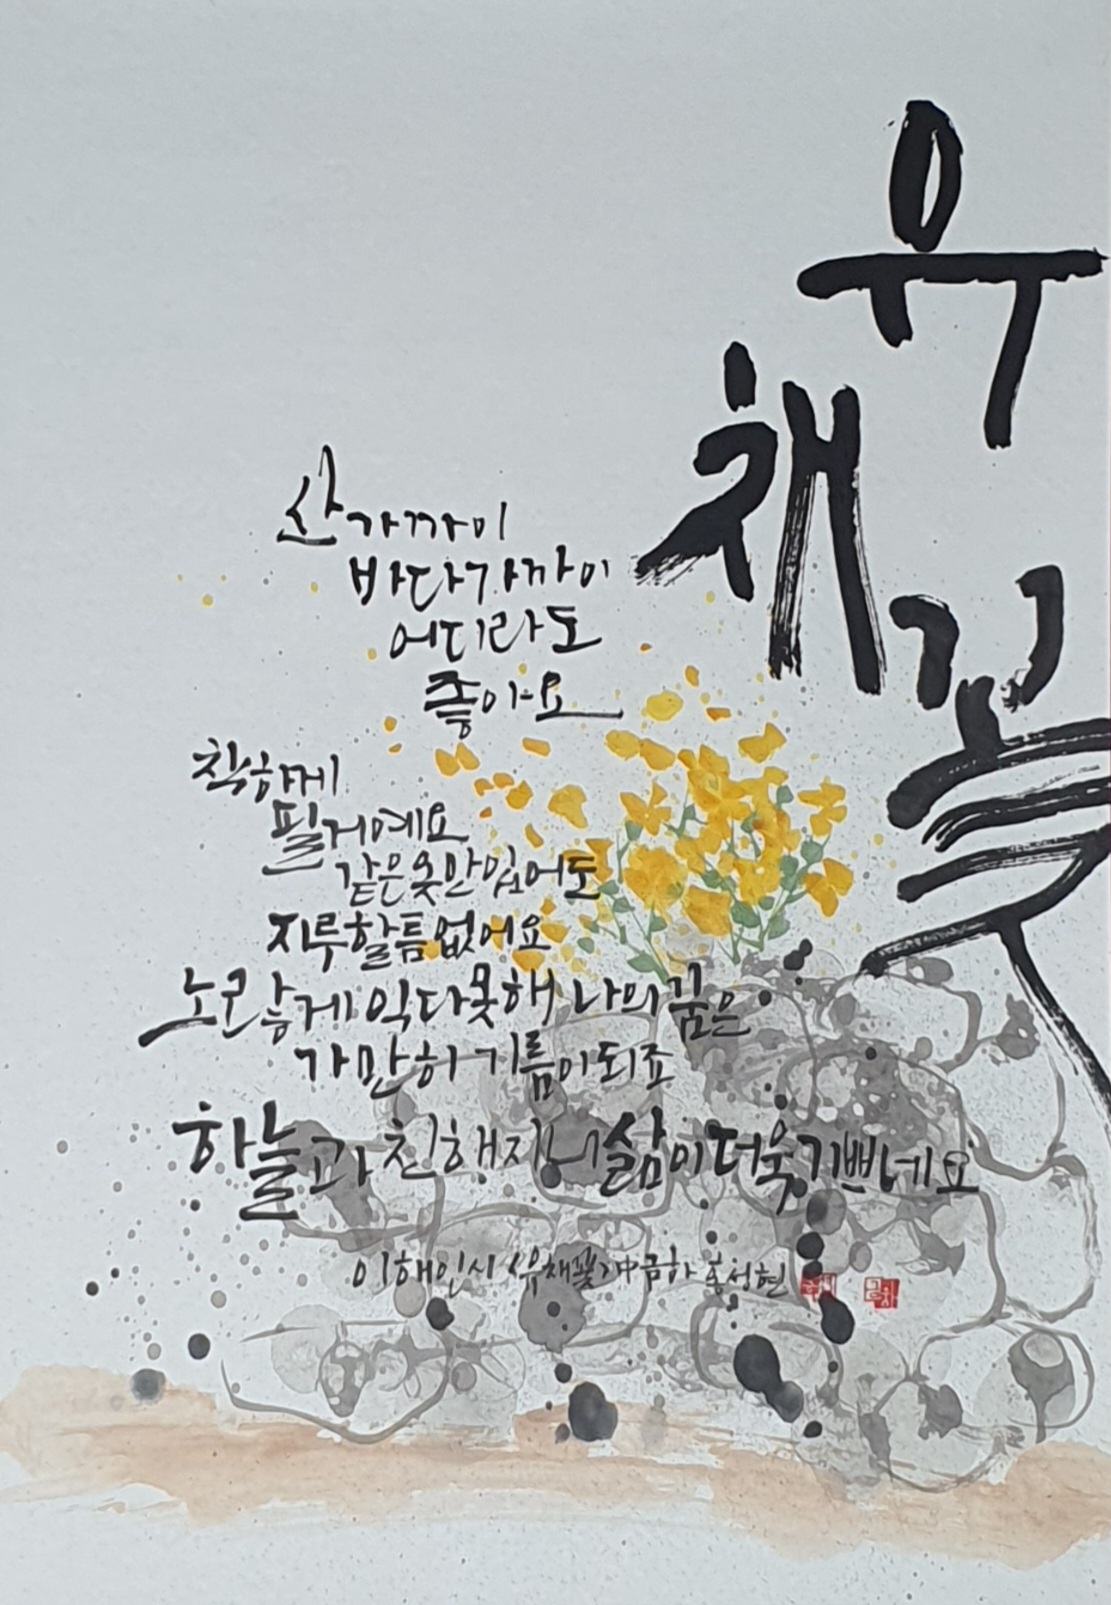 유채꽃
산 가까이
바다 가까이
어디라도
좋아요
착하게
필 거예요
같은 옷만 입어도
지루할 틈 없어요
노랗게 익다 못해 나의 꿈은
가만히 기름이 되죠
하늘과 친해지니 삶이 더욱 기쁘네요
이해인 시 <유채꽃>中 금하 홍성현